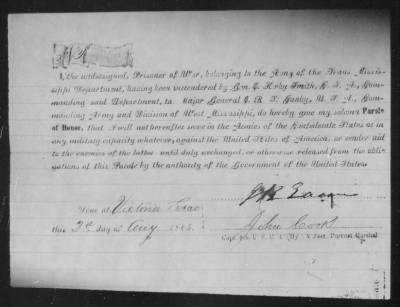 I, the undersigned, Prisoner of War, belonging to the Army of the Trans Missis-
sippi Department, having been surrendered by Gen. E. Kirby Smith, C. S. A., Com-
manding said Department, to Major General E. R. S. Canby, U. S. A., Com-
manding Army and Division of West Mississippi, do hereby give my solemn Parole
of Honor, that I will not hereafter serve in the Armies of the Confederate States or in
any military capacity whatever, against the United States of America, or render aid
to the enemies of the latter until duly exchanged, or otherwise released from the obli-
gations of this Parole by the authority of the Government of the United States.
Done at Victoria Texas
this 3d day of Aug 1865.
John
Capt. & Asst. Provost Marshal